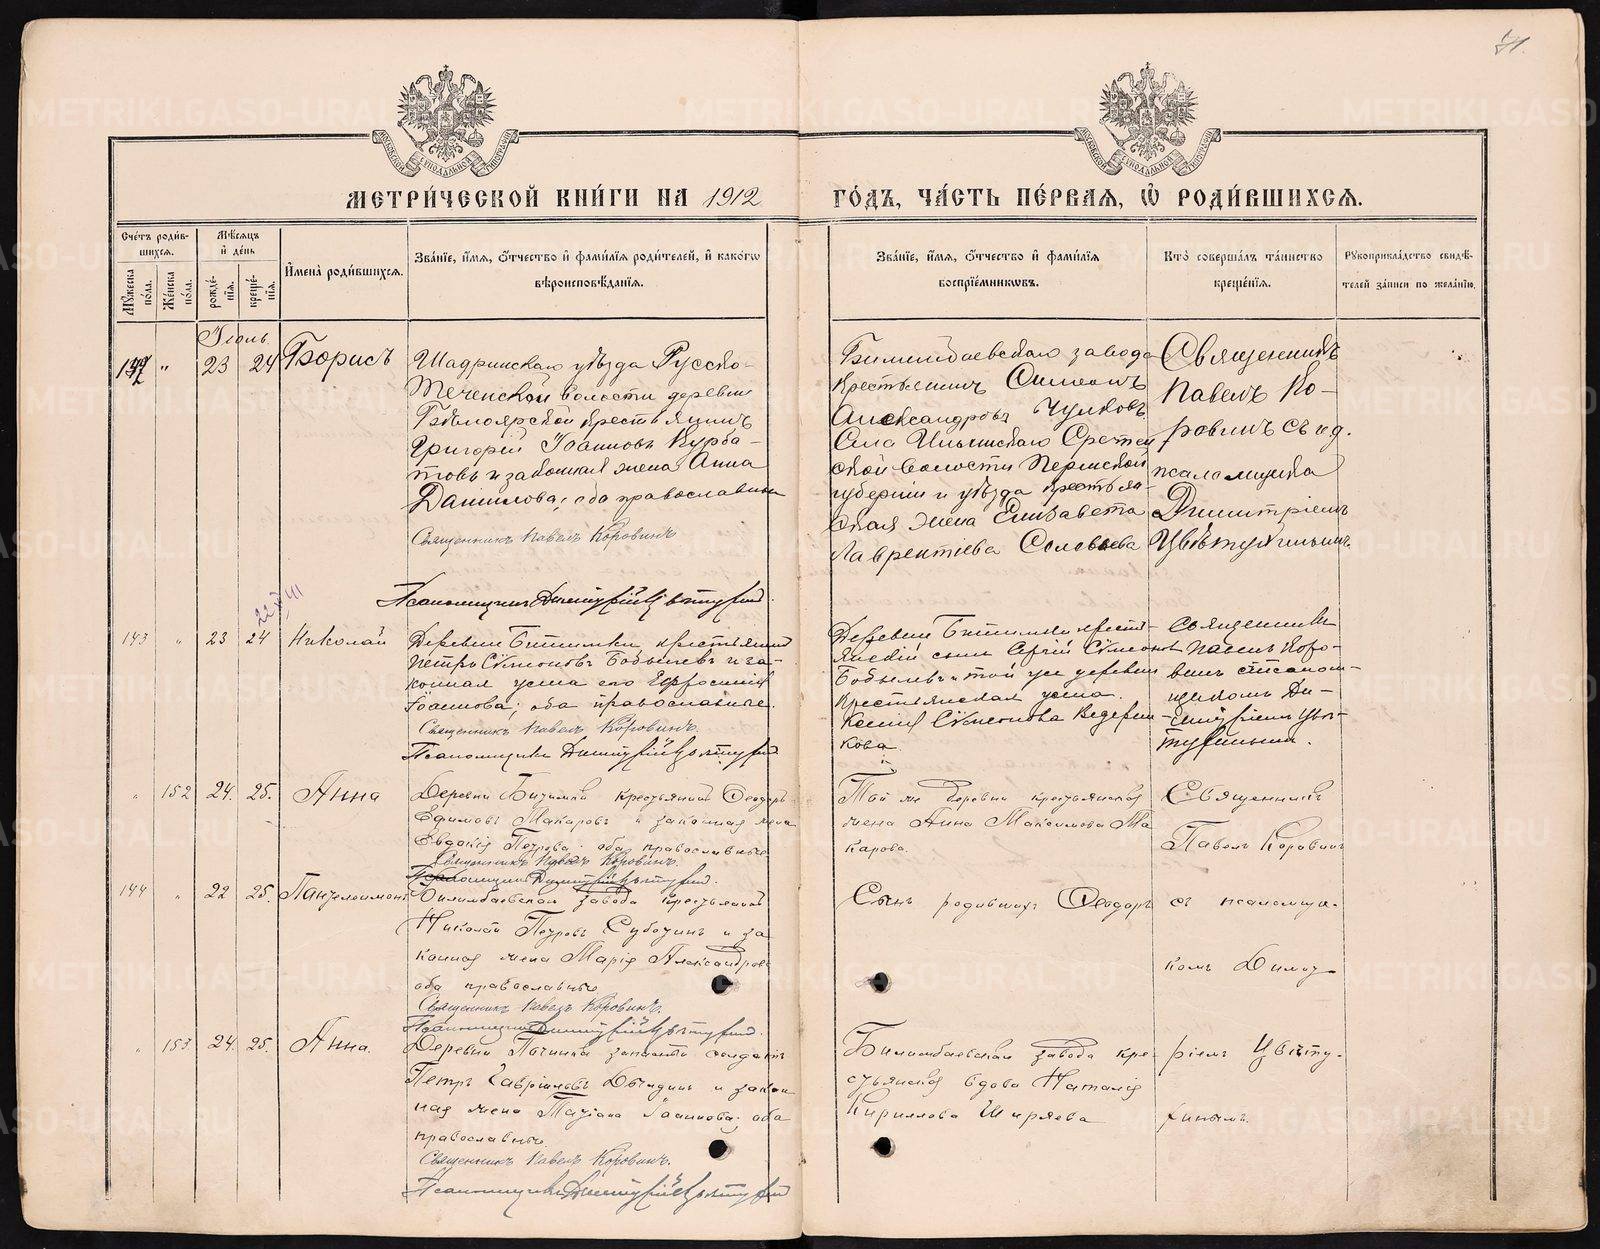 41.
МЕТРИ́ЧЕСКОЙ КНИ́ГИ НА 1912
ГО́ДЪ, ЧА́СТЬ ПЕ́РВАЯ, Ѽ РОДИ́ВШИХСЯ.
Сче́тъ роди́в-
шихся.
Мꙋ́жеска по́ла.
Же́нска по́ла.
Мѣ́сяцъ и҆ де́нь
рожде́-нїя.
креще́-нїя.
И҆мена̀ роди́вшихся.
Зва́нїе, и҆́мя, о҆́тчество и҆ фами́лїя роди́телей, и҆ како́гѡ
вѣроисповѣ́данїя.
Зва́нїе, и҆́мя, о҆́тчество и҆ фами́лїя
воспрїе́мникѡвъ.
Кто̀ соверша́лъ та́инство
креще́нїя.
Рꙋкоприкла́дство свидѣ́-
телей за́писи по жела́нїю.
Іюль.
142 " 23 24 Борисъ
Шадринскаго уѣзда Русско-
Теченской волости деревни
Бѣлоярской крестьянинъ
Григорій Іоанновъ Курба-
товъ и законная жена Анна
Даніилова; оба православные
Священникъ Павелъ Коровинъ
Псаломщикъ Димитрій Цвѣтухинъ.
Билимбаевскаго завода
крестьянинъ Симеонъ
Александровъ Чулковъ
Села Ильинскаго Сретен
ской волости Пермской
губерніи и уѣзда крестьян-
ская жена Елизавета
Лаврентіева Соловьева
Священникъ
Павелъ Ко-
ровинъ съ и.д.
псаломщика
Димитріемъ
Цвѣтухинымъ.
143 " 23 24 Николай
Деревни Битимки крестьянинъ
Петръ Сѵмеоновъ Бобылевъ и за-
конная жена его Евфросинія
Іоаннова; оба православные.
Священникъ Павелъ Коровинъ.
Псаломщикъ Димитрій Цвѣтухинъ
Деревни Битимки кресть-
янскій сынъ Сергій Сѵмеоновъ
Бобылевъ и той же деревни
крестьянская жена
Ксенія Сѵмеонова Ведерни-
кова.
Священникъ
Павелъ Коро-
винъ съ псалом-
щикомъ Ди-
митріемъ Цвѣ-
тухинымъ.
" 152 24. 25. Анна
Деревни Битимки крестьянинъ Ѳеодоръ
Ефимовъ Макаровъ и законная жена
Евдокія Петрова; оба православные
Священникъ Павелъ Коровинъ.
Псаломщикъ Димитрій Цвѣтухинъ.
Той же деревни крестьянская
жена Анна Максимова Ма
карова.
Священникъ
Павелъ Коровинъ
144 " 22 25. Пантелеимонъ
Билимбаевскаго завода крестьянинъ
Николай Петровъ Субботинъ и за
конная жена Марія Александрова
оба православные
Священникъ Павелъ Коровинъ.
Псаломщикъ Димитрій Цвѣтухинъ.
Сынъ родившихъ Ѳеодоръ
съ псаломщи-
комъ Димит-
" 153. 24. 25. Анна.
Деревни Починка солдатъ
Петръ Гавріиловъ и закон
ная жена Татіана Іоаннова; оба
православные.
Священникъ Павелъ Коровинъ.
Псаломщикъ Димитрій Цвѣтухинъ
Билимбаевскаго завода кре-
стьянская вдова Наталія
Кириллова Ширяева
ріемъ Цвѣту-
хинымъ.